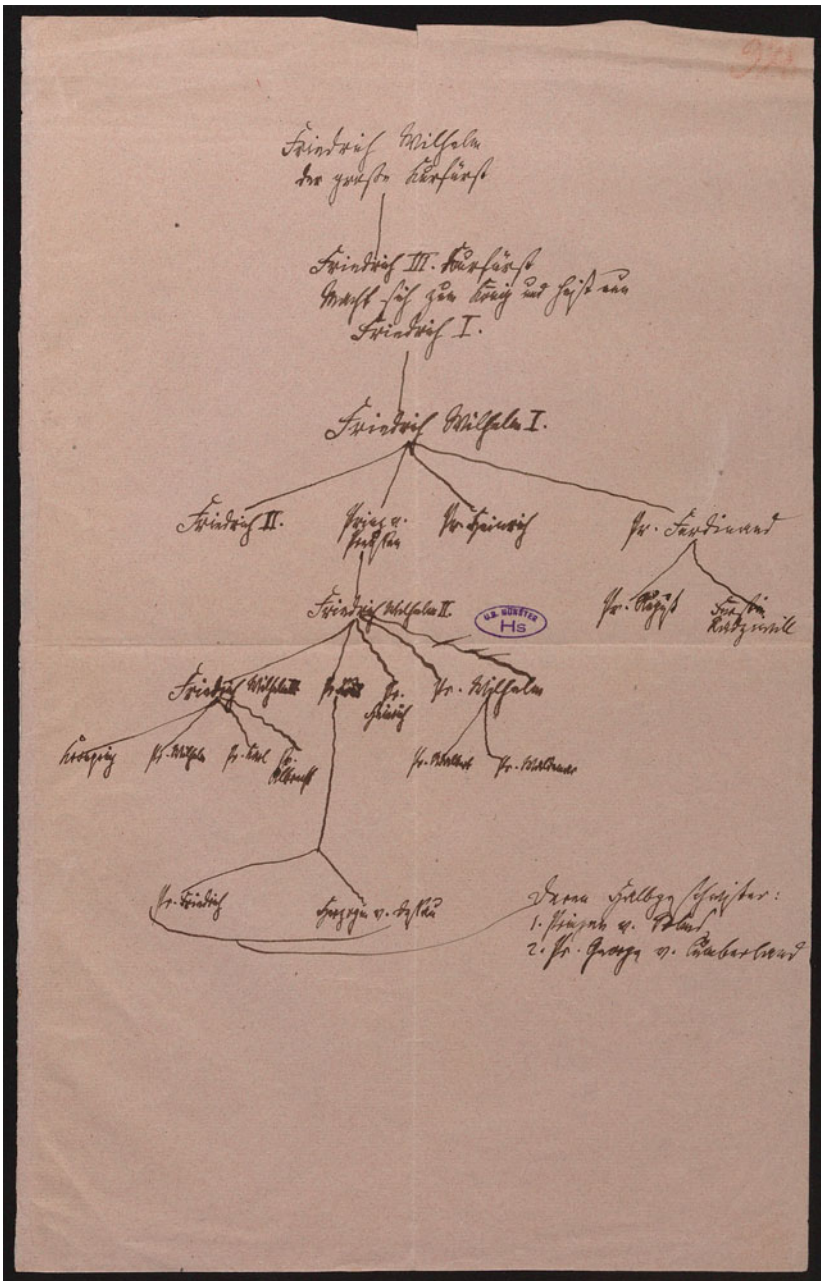 Friedrich Wilhelm
der große Kurfürst
Friedrich III. Kurfürst
Macht sich zum König und heißt nun
Friedrich I.
Friedrich Wilhelm I.
Friedrich II.
Prinz v.
Preußen
Pr. Heinrich
Pr. Ferdinand
Friedrich Wilhelm II.
U.B. MÜNSTER
Hs
Pr. August
Fürstin
Radziwill
Friedrich Wilhelm III
Pr.
Pr.
Heinrich
Pr. Wilhelm
Kronprinz
Pr. Wilhelm
Pr. Karl
Pr.
Albrecht
Pr. Adalbert
Pr. Waldemar
Pr. Friedrich
Herzogin v. Dessau
Deren Halbgeschwister:
1. Prinzen v. Solms
2. Pr. George v. Cumberland